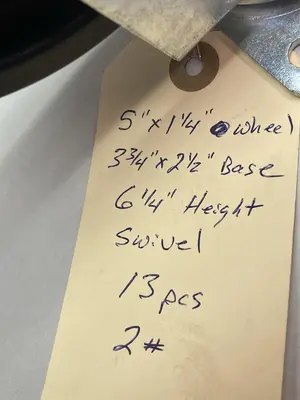 5" x 1 1/4" wheel
3 3/4" x 2 1/2" Base
6 1/4" Height
Swivel
13 pcs
2#